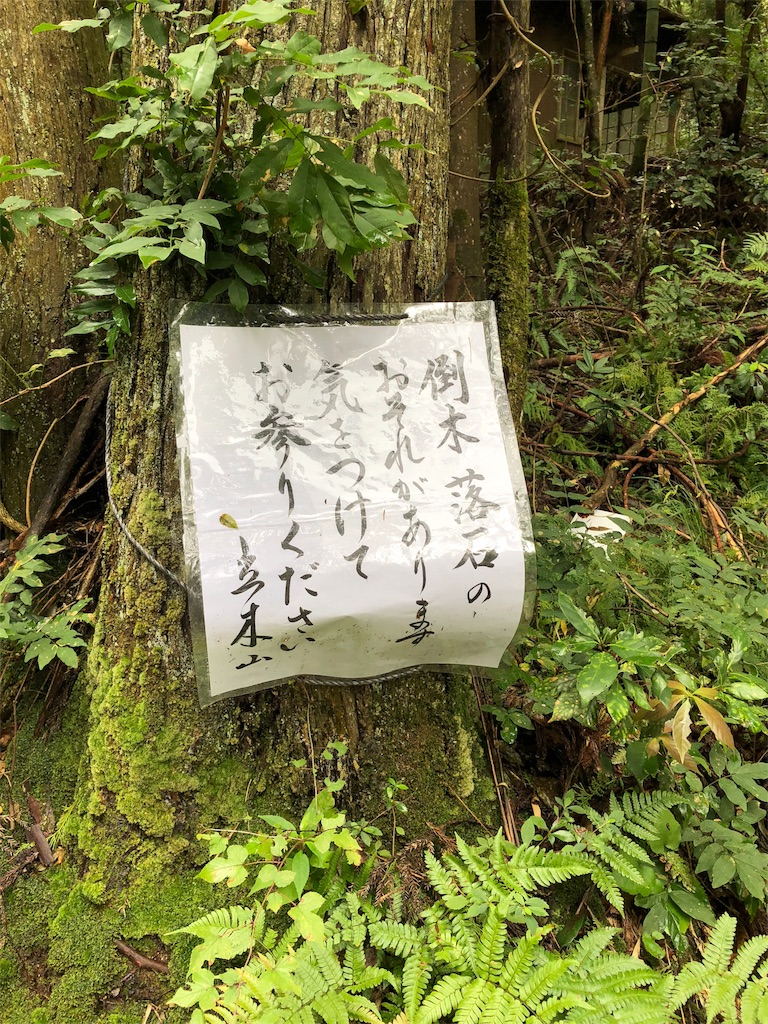 倒木 落石の
おそれがあります
気をつけて
お参りください
立木山